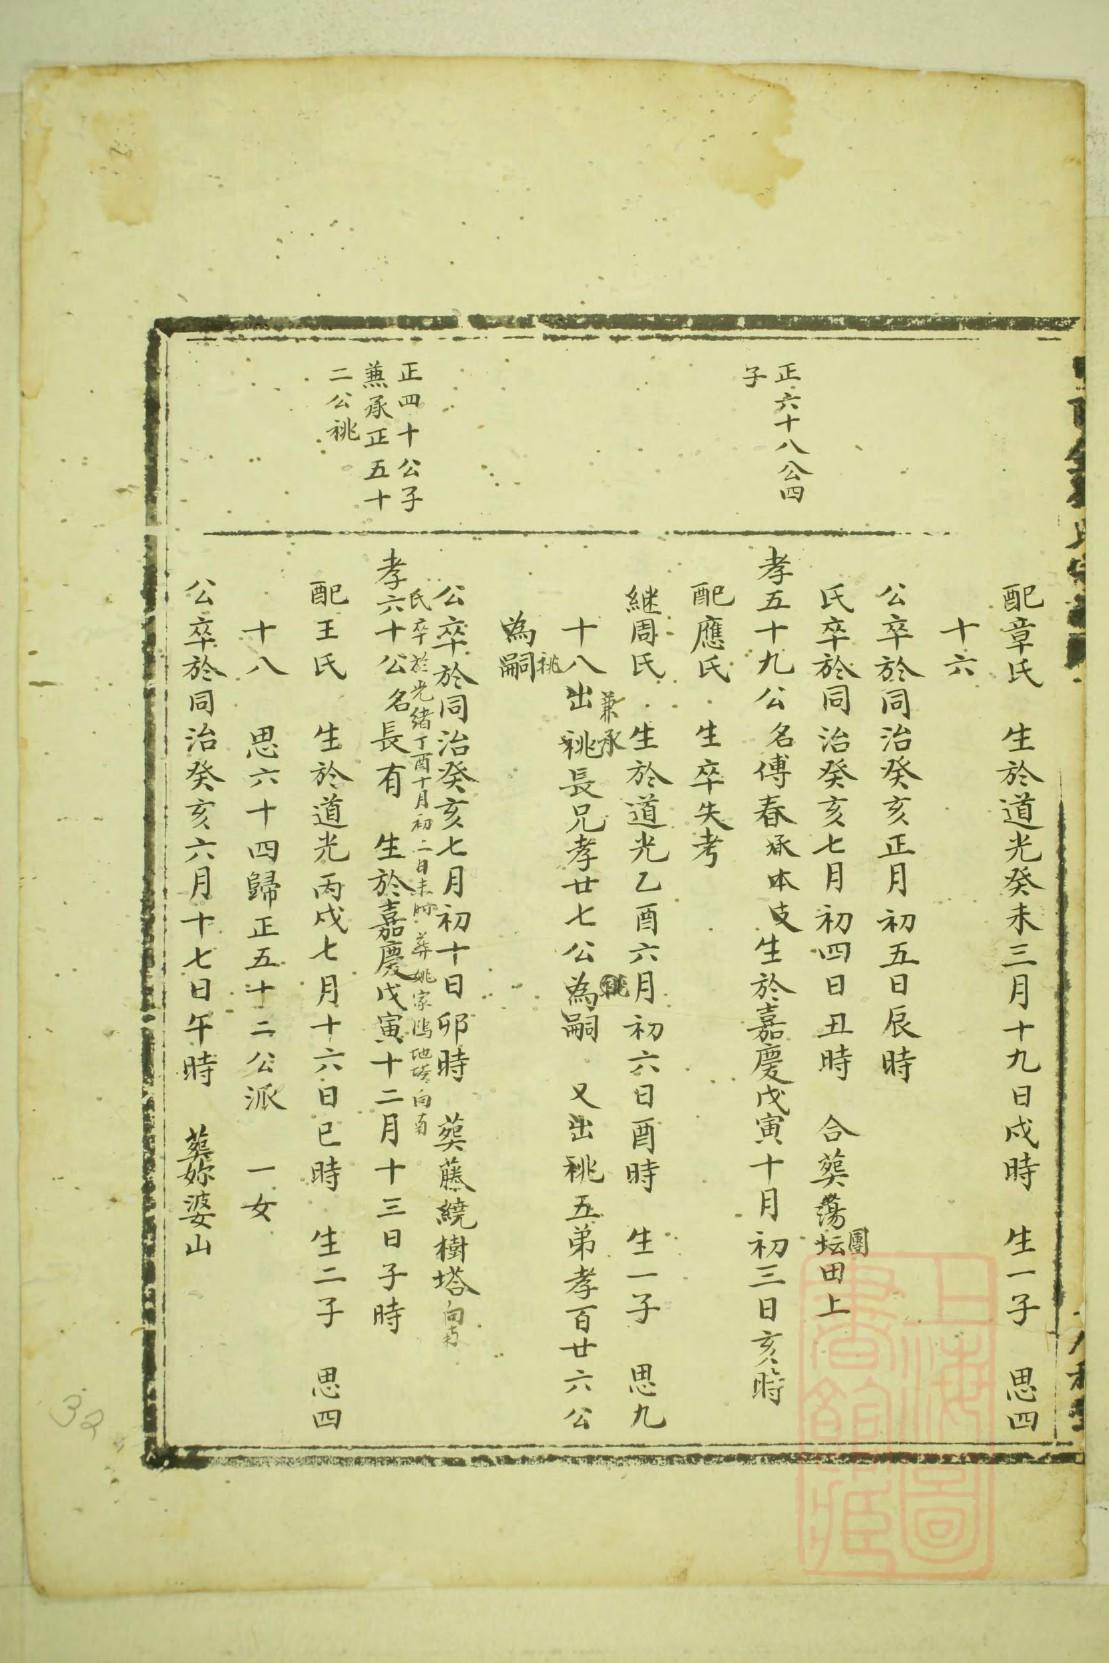 配章氏　生於道光癸未三月十九日戌時　生一子　思四
十六
公卒於同治癸亥正月初五日辰時
氏卒於同治癸亥七月初四日丑時　合葬蕩坛田上
團
正六十八公四
子
孝五十九公名傅春承本支生於嘉慶戊寅十月初三日亥時
配應氏　生卒失考
継周氏　生於道光乙酉六月初六日酉時　生一子　思九
兼承
十八出祧長兄孝廿七公為嗣　又出祧五弟孝百廿六公
祧
為嗣
公卒於同治癸亥七月初十日卯時　葬藤繞樹塔向南
氏卒於光緒丁酉十月初二日未時　葬姚家塢地塔向南
正四十公子
兼承正五十
二公祧
孝六十公名長有　生於嘉慶戊寅十二月十三日子時
配王氏　生於道光丙戌七月十六日巳時　生二子　思四
十八　思六十四歸正五十二公派　一女
公卒於同治癸亥六月十七日午時　葬妳婆山
32
上海圖
書館藏